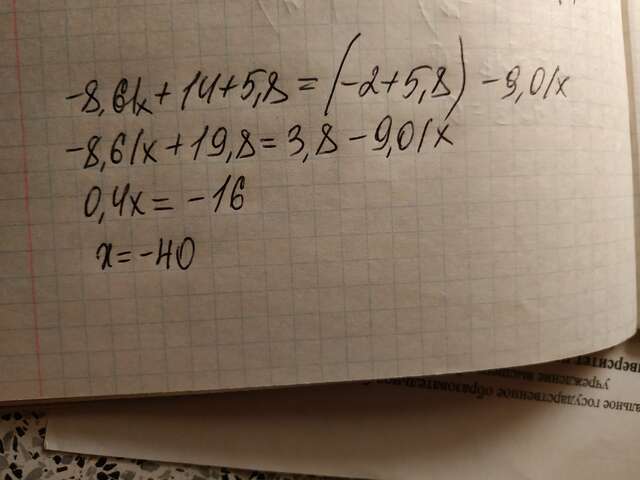 -8,61x + 14 + 5,8 = (-2 + 5,8) - 9,01x
-8,61x + 19,8 = 3,8 - 9,01x
0,4x = -16
x = -40
альное государственное образовательное
учреждение
иверситет